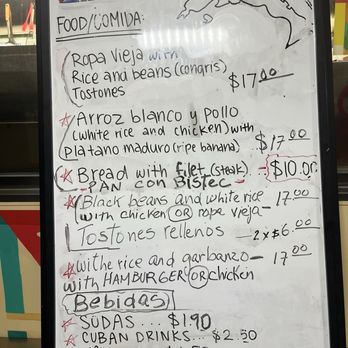 FOOD/COMIDA:
Ropa Vieja with
Rice and beans (congris)
Tostones $17.00
Arroz blanco y pollo
(white rice and chicken) with
platano maduro (ripe banana) $17.00
Bread with filet (steak). - $10.00
- PAN con Bistec -
Black beans and white rice 17.00
with chicken OR rope vieja -
Tostones rellenos - 2x$6.00
withe rice and garbanzo - 17.00
with HAMBURGER OR chicken
Bebidas
SODAS... $1.90
CUBAN DRINKS... $2.50